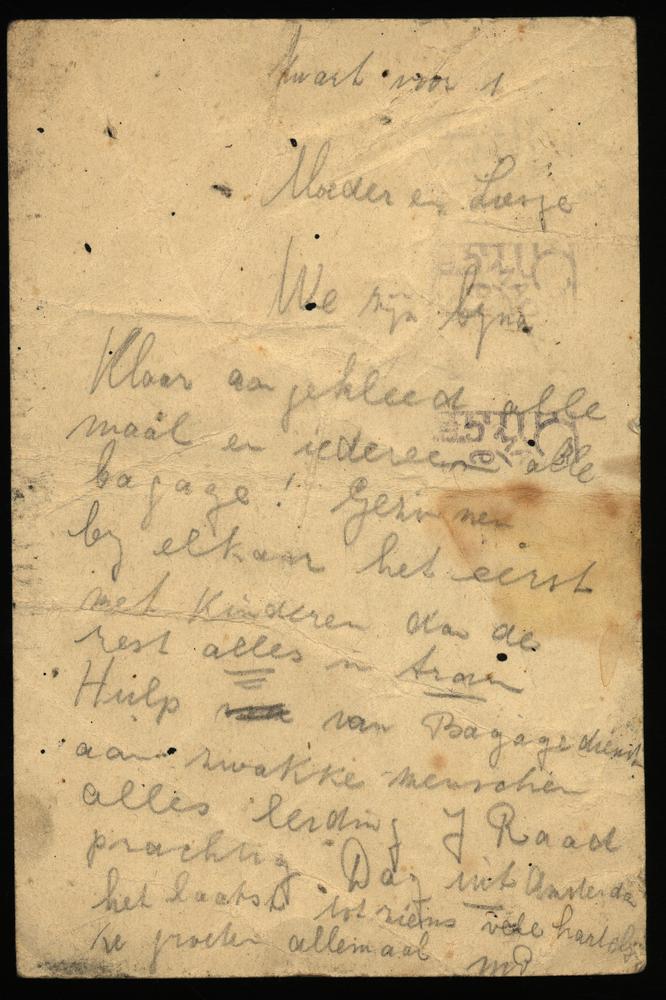 kwart voor 1
Moeder en Loesje
We zijn byna
Klaar aangekleed alle
maal en iedereen alle
bagage! Gezinnen
by elkaar het eerst
met Kinderen dan de
rest alles in tram
Hulp van Bagagedienst
aan zwakke menschen
alles leiding J Raad
prachtig Dag uit Amsterdam
het laatst tot ziens vele hartelij
ke groeten allemaal